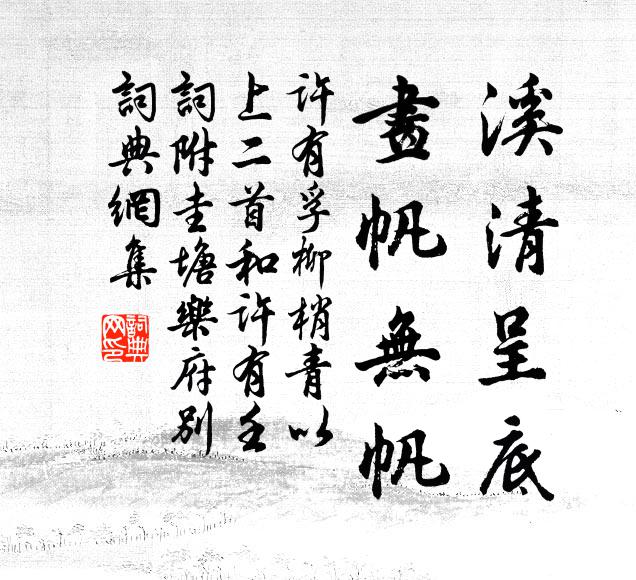 溪清呈底
畫帆無帆
許有孚柳梢青以
上二首和許有壬
詞附圭塘樂府別
詞典網集
詞典網印